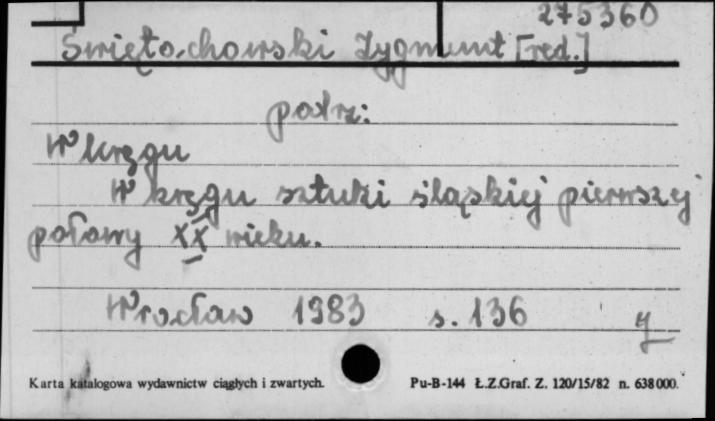 275360
Święto-chowski Zygmunt [red.]
patrz:
W kręgu
W kręgu sztuki śląskiej pierwszej
połowy XX wieku.
Wrocław 1983 s. 136 y
Karta katalogowa wydawnictw ciągłych i zwartych. Pu-B-144 Ł.Z.Graf. Z. 120/15/82 n. 638000.